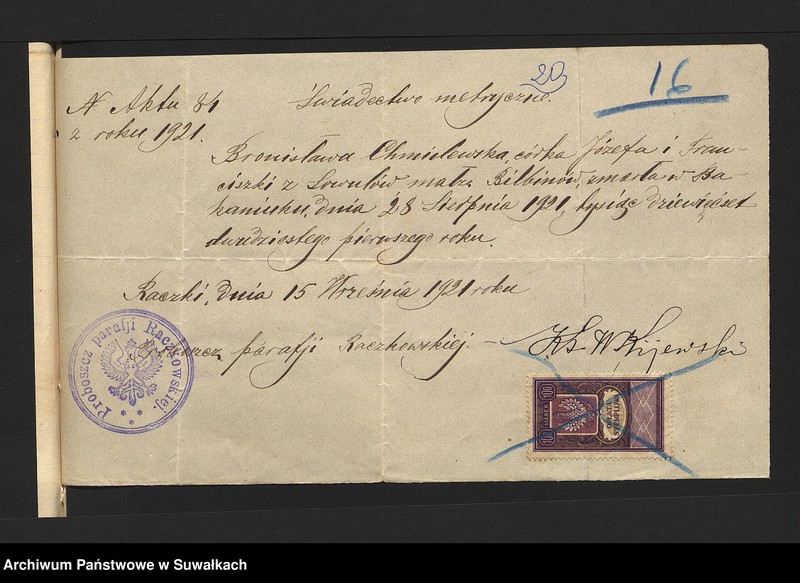 20
16
N Aktu 84
z roku 1921.
Świadectwo metryczne.
Bronisława Chmielewska, córka Józefa i Fran-
ciszki z Sowulów małż. Bilbinów, zmarła w Ba-
kaniuku, dnia 28 Sierpnia 1921, tysiąc dziewięćset
dwudziestego pierwszego roku.
Raczki, dnia 15 Września 1921 roku
Proboszcz parafji Raczkowskiej. — Ks W Kijewski
Proboszcz parafji Raczkowskiej.
100 MARKA 100
OPŁATA STEMPLOWA
Archiwum Państwowe w Suwałkach